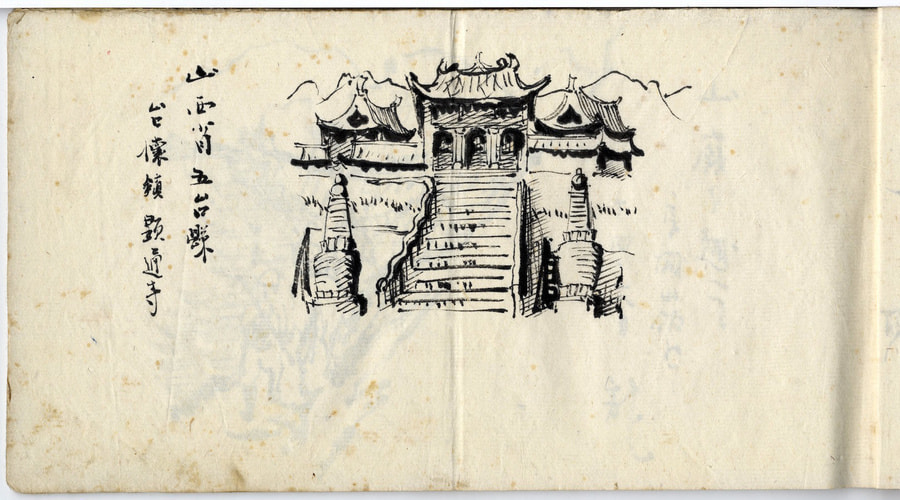 山西省五台縣
台懷鎮顯通寺